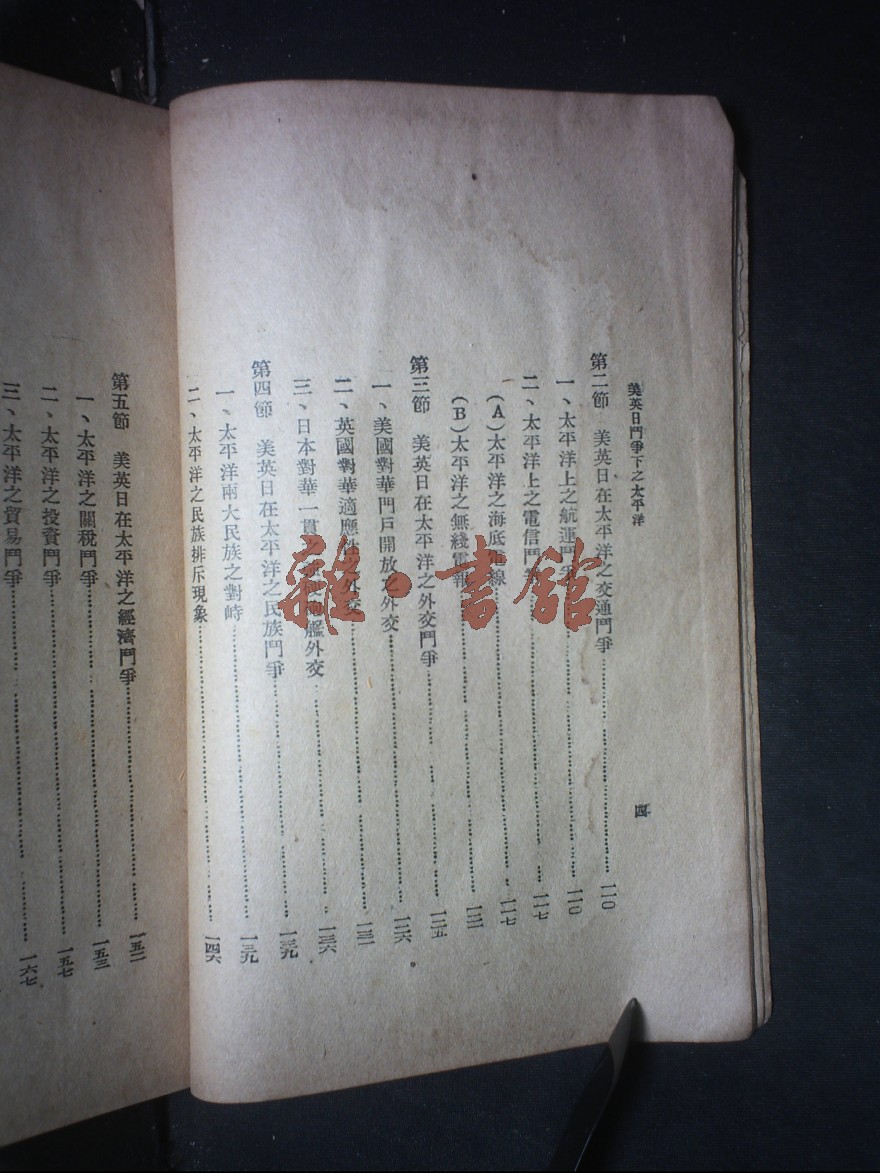 美英日鬥爭下之太平洋
四
第二節 美英日在太平洋之交通鬥爭 一一〇
一、太平洋上之航運鬥爭 一一〇
二、太平洋上之電信鬥 一一七
(A)太平洋之海底電線 一一七
(B)太平洋之無綫電報
第三節 美英日在太平洋之外交鬥爭 一二五
一、美國對華門戶開放之外交 一二六
二、英國對華適應性之外交
三、日本對華一貫之 艦外交 一三六
第四節 美英日在太平洋之民族鬥爭 一三九
一、太平洋兩大民族之對峙 一三九
二、太平洋之民族排斥現象 一四六
第五節 美英日在太平洋之經濟鬥爭 一五二
一、太平洋之關稅鬥爭 一五三
二、太平洋之投資鬥爭 一五七
三、太平洋之貿易鬥爭 一六七
雜·書館